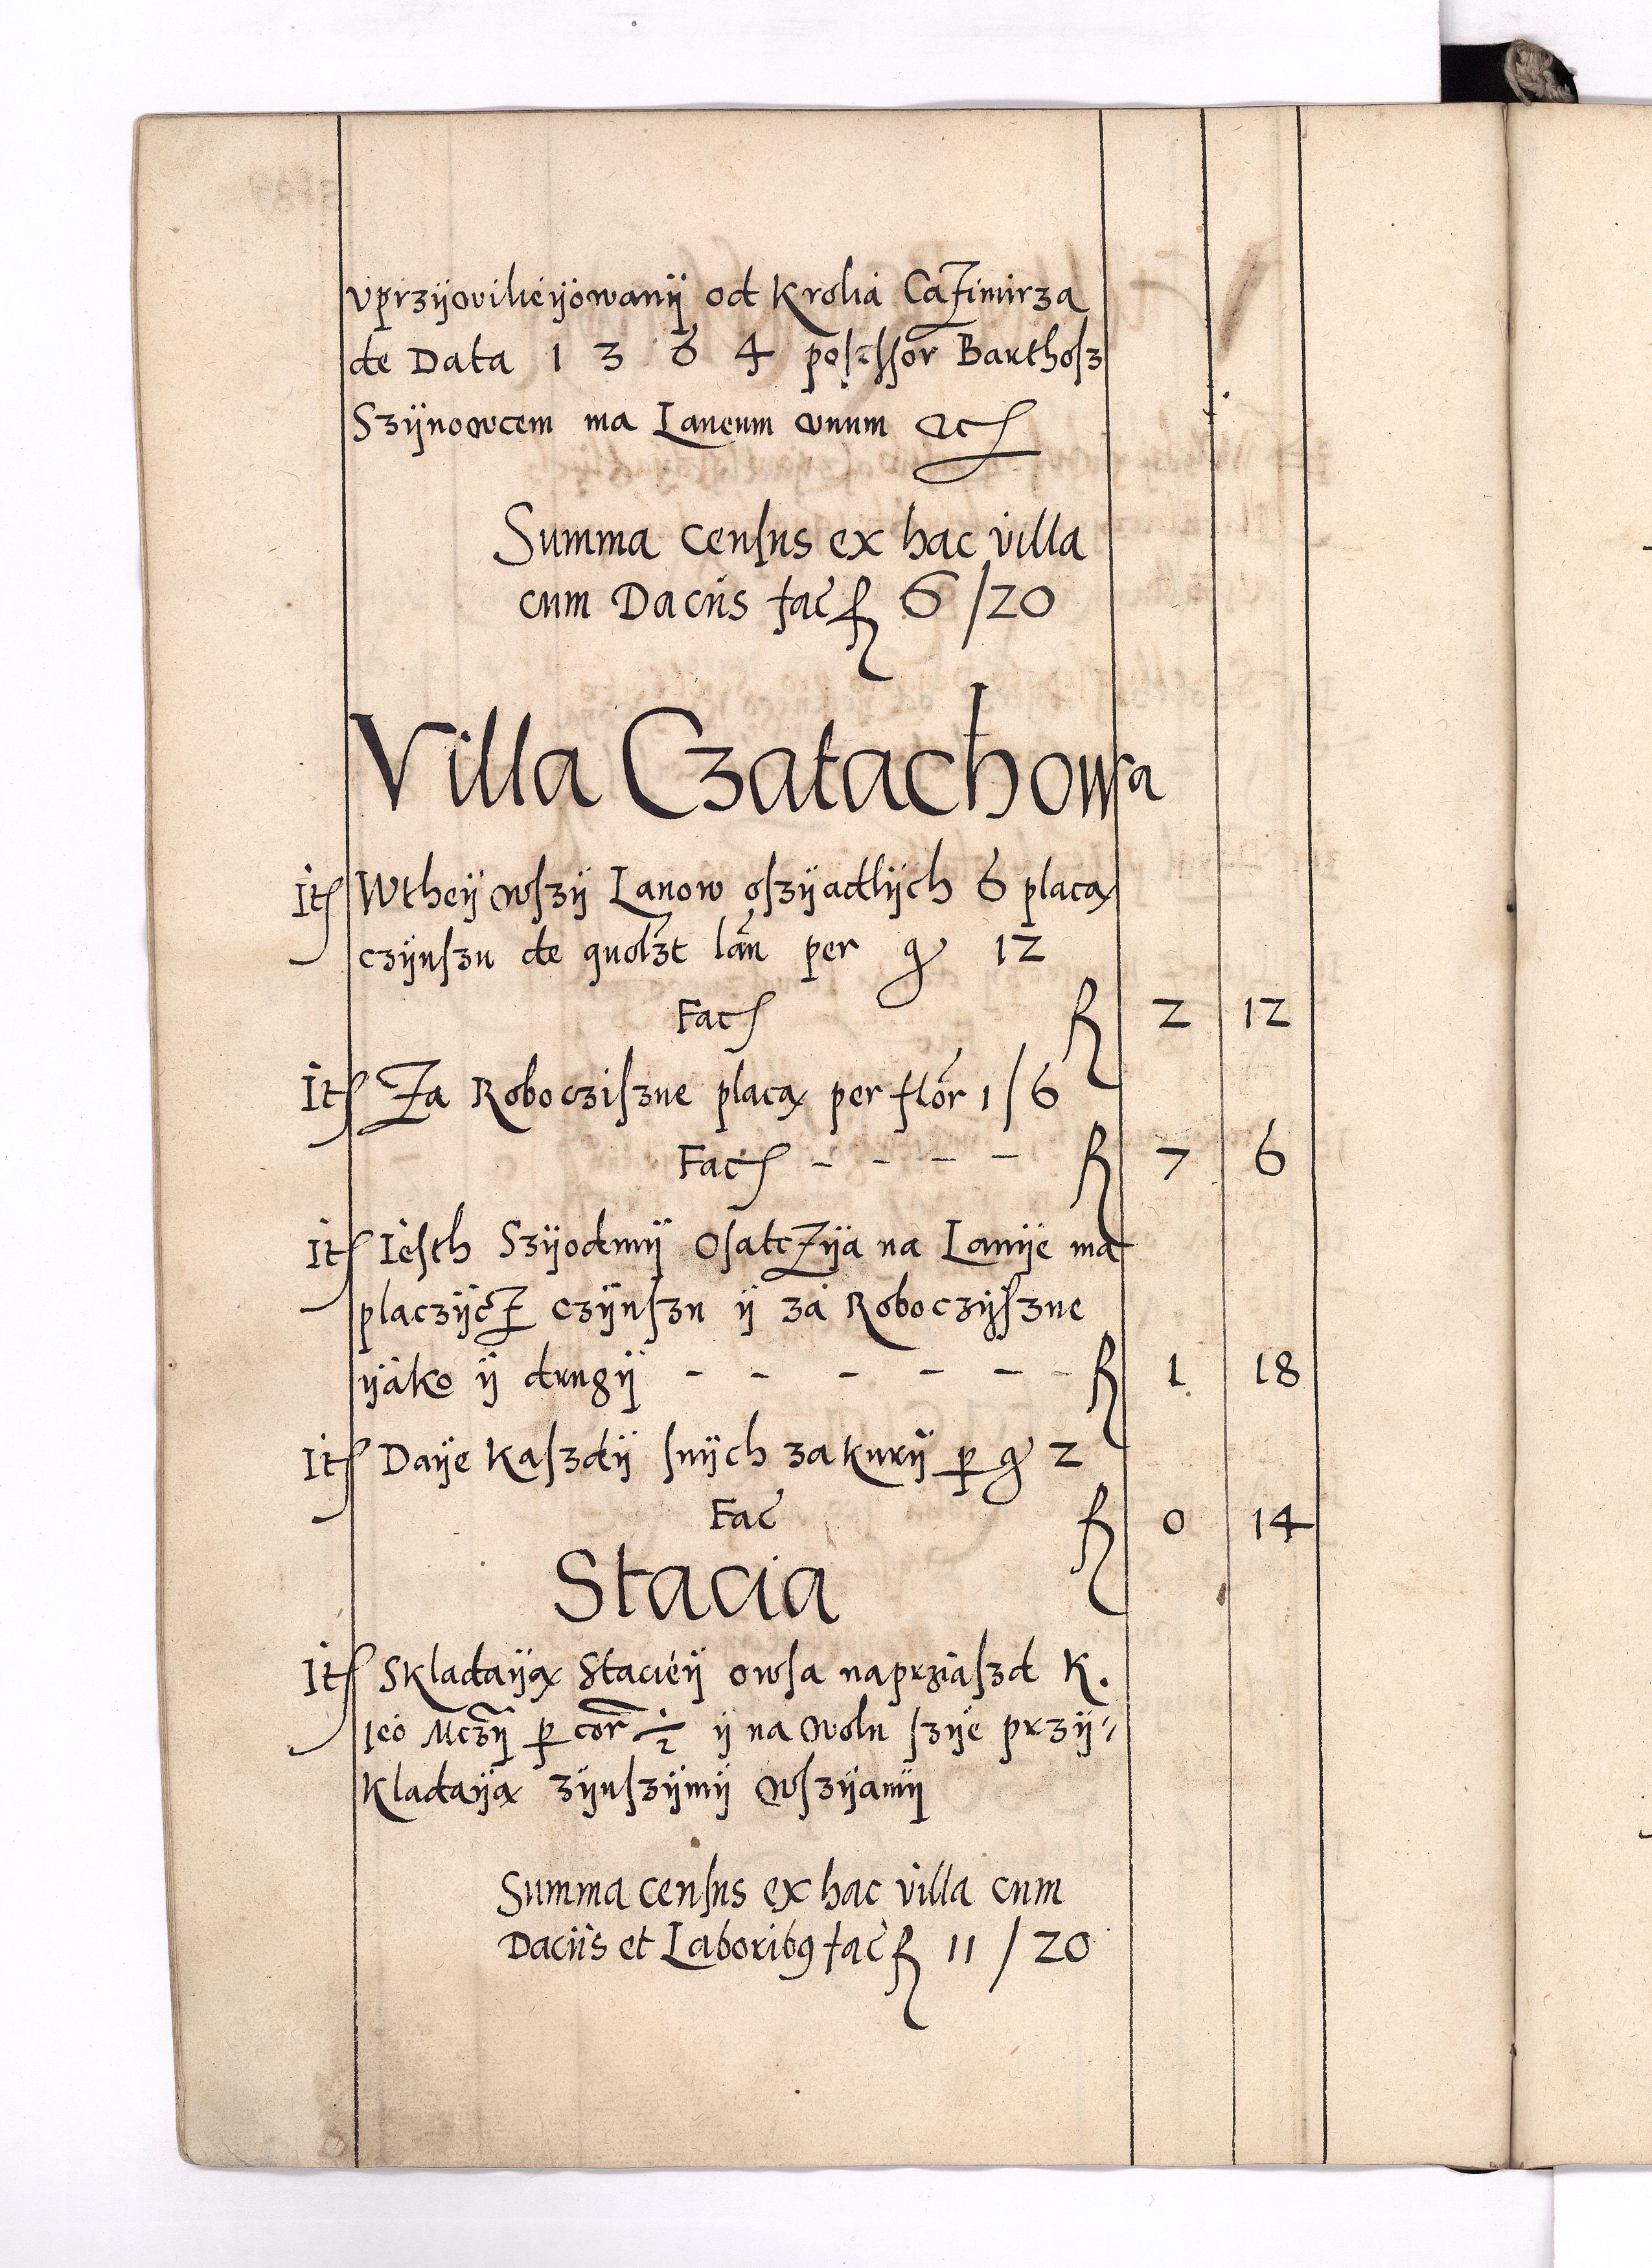 vprzÿvilieÿowanÿ od Krolia Cazimirza
de Data 1 3 6 4 possessor Barthosz
Szÿnowcem ma Laneum vnum etc
Summa census ex hac villa
cum Daciis fac̃ fl 6/20
Villa Czatachowa
It Wtheÿ wszÿ Lanow oszÿadlÿch 6 placą
czÿnszu de quolzt lan per gr 12
Fac fl 2 12
It Za Roboczisznе placą per flor 1/6
Fac - - - - fl 7 6
It Iesth Szÿodmÿ Osatczÿa na Laniÿe ma
placzÿcz czÿnszu ÿ za Roboczÿszne
ÿako ÿ drugÿ - - - - - - fl 1 18
It Daÿe Kaszdÿ snÿch za kurÿ p gr 2
Fac fl 0 14
Stacia
It Skladaÿą Staciéÿ owsa naprziaszd K.
Ieo Mczÿ p cor ½ ÿ na wolu szÿe przÿ"
kladaÿą zÿnszÿmÿ wszÿamÿ
Summa census ex hac villa cum
Daciis et Laborib9 fac̃ fl 11/20